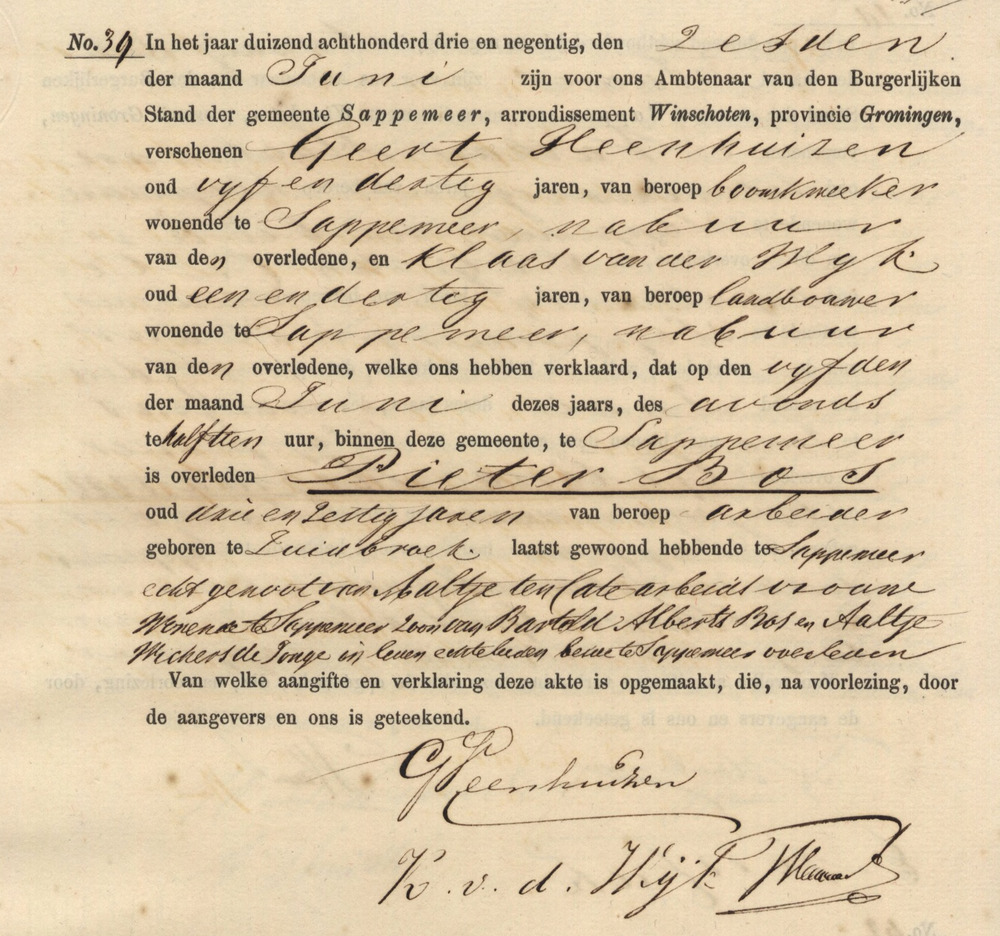 No. 39 In het jaar duizend achthonderd drie en negentig, den Zesden
der maand Juni zijn voor ons Ambtenaar van den Burgerlijken
Stand der gemeente Sappemeer, arrondissement Winschoten, provincie Groningen,
verschenen Geert Steenhuizen
oud vyf en dertig jaren, van beroep boomkweeker
wonende te Sappemeer, nabuur
van den overledene, en Klaas van der Wyk
oud een en dertig jaren, van beroep landbouwer
wonende te Sappemeer, nabuur
van den overledene, welke ons hebben verklaard, dat op den vyfden
der maand Juni dezes jaars, des avonds
te half tien uur, binnen deze gemeente, te Sappemeer
is overleden Pieter Bos
oud drie en zestig jaren van beroep arbeider
geboren te Zuidbroek. laatst gewoond hebbende te Sappemeer
echtgenoot van Aaltje ten Cate arbeidsvrouw
wonende te Sappemeer zoon van Barteld Alberts Bos en Aaltje
Wichers de Jonge in leven echtelieden beide te Sappemeer overleden
Van welke aangifte en verklaring deze akte is opgemaakt, die, na voorlezing, door
de aangevers en ons is geteekend.
G Steenhuizen
K. v. d. Wijk